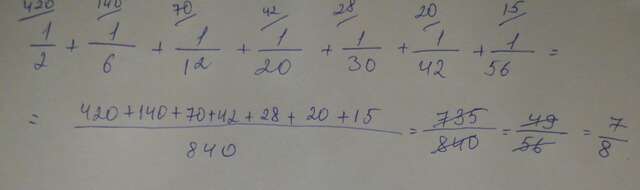 420 140 70 42 28 20 15
1/2 + 1/6 + 1/12 + 1/20 + 1/30 + 1/42 + 1/56 =
= (420+140+70+42+28+20+15)/840 = 735/840 = 49/56 = 7/8